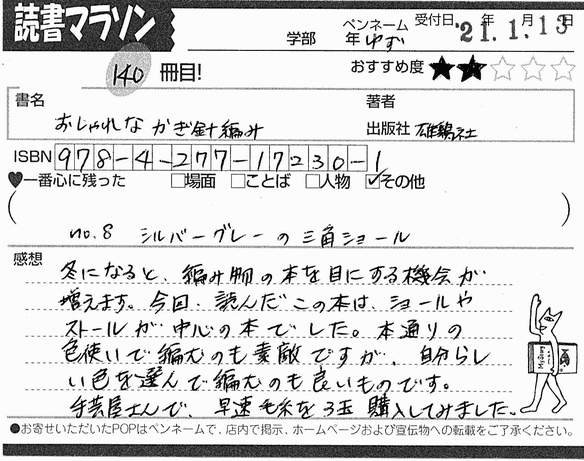 読書マラソン
学部 年 ペンネーム ゆず 受付日 '21年 1月 13日
140 冊目! おすすめ度 ★★☆☆☆
書名 著者
おしゃれな かぎ針編み 出版社 雄鶏社
ISBN 978-4-277-17230-1
♥一番心に残った □場面 □ことば □人物 ☑その他
no.8 シルバーグレーの三角ショール
感想
冬になると、編み物の本を目にする機会が
増えます。今回、読んだこの本は、ショールや
ストールが中心の本でした。本通りの
色使いで編むのも素敵ですが、自分らし
い色を選んで編むのも良いものです。
手芸屋さんで、早速毛糸を3玉購入してみました。
●お寄せいただいたPOPはペンネームで、店内で掲示、ホームページおよび宣伝物への転載をご了承ください。